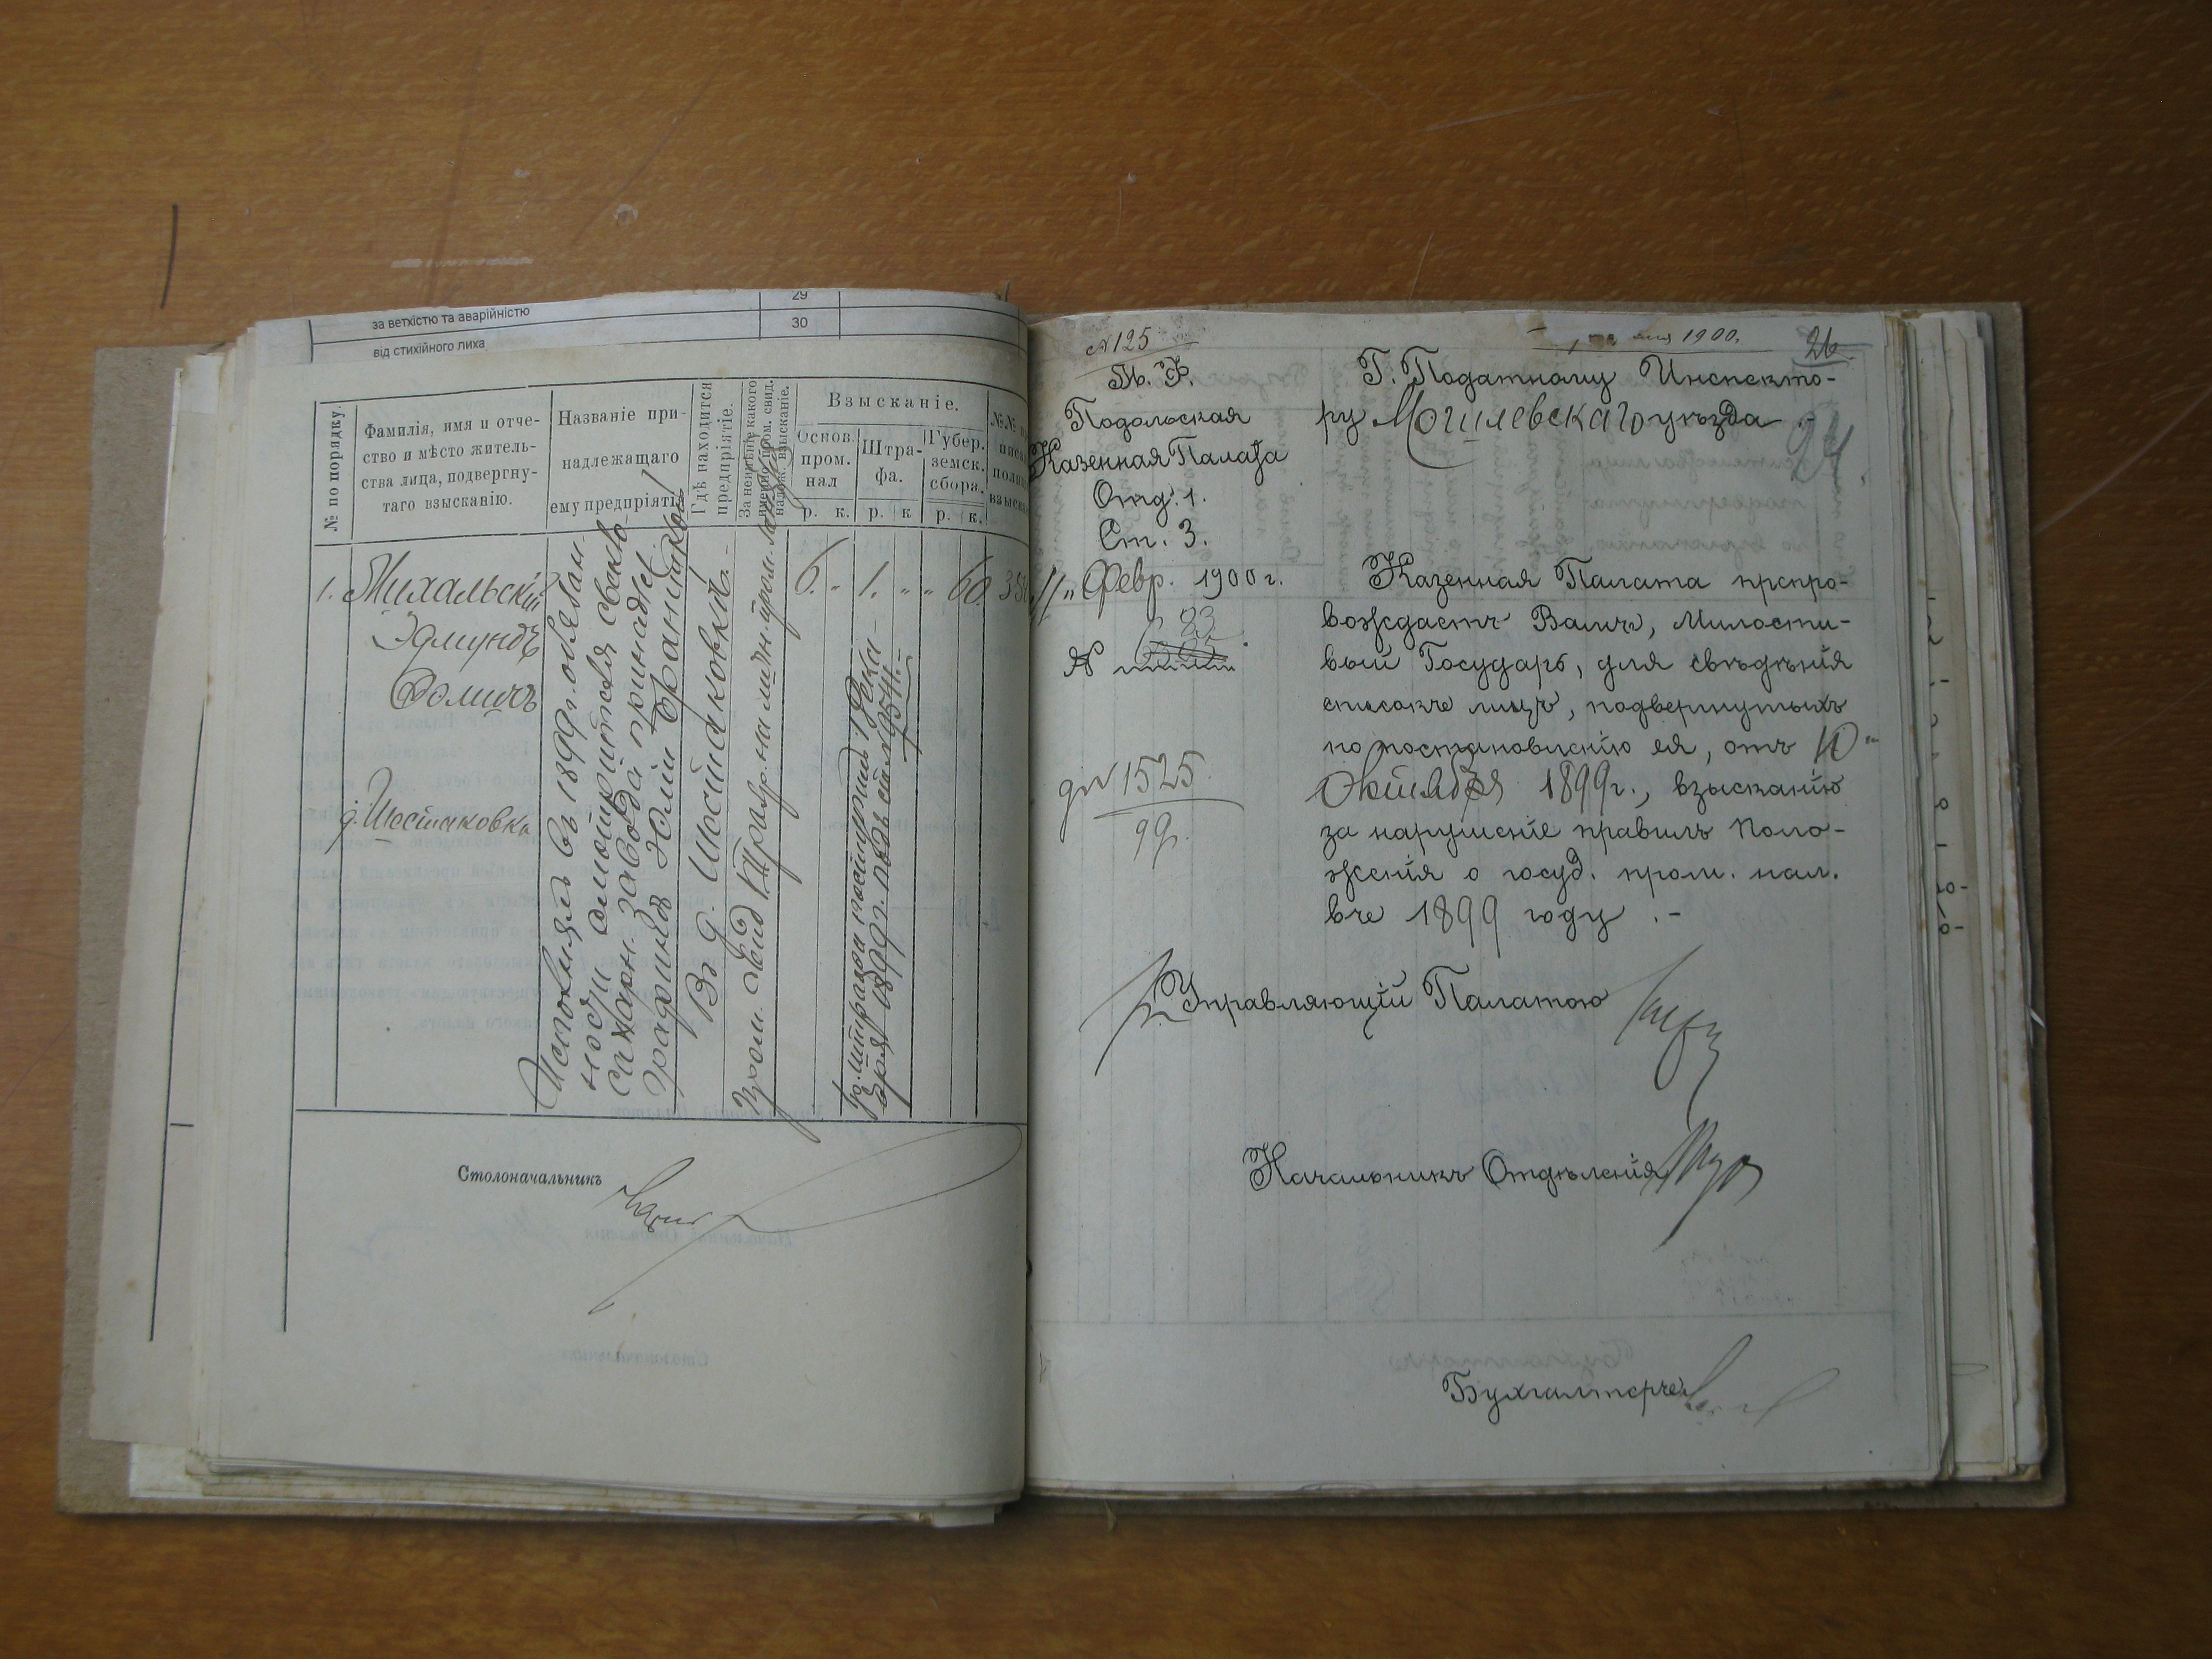 29
за ветхістю та аварійністю
30
від стихійного лиха
№ по порядку.
Фамилія, имя и отче-
ство и мѣсто житель-
ства лица, подвергну-
таго взысканію.
Названіе при-
надлежащаго
ему предпріятія
Гдѣ находится
предпріятіе.
За неимѣніе какого
именно пром. свид.
налож. взысканіе.
Взысканіе.
Основ.
пром.
нал
Штра-
фа.
Губер.
земск.
сбора.
№№
р. к. р. к р. к.
1. Михальскій
Эдмундъ
д. Шостаковка
Исполнялъ въ 1899 г. обязан-
ности смотрителя свекло
сахарн. завода принадл.
графинѣ Юліи Браницкой
Въ д. Шостаковкѣ.-
Пром. свид.
6. - 1. - - 60
1899 г. подъ ст. №
Столоначальникъ
№ 125
1900.
26.
24
М. Ф.
Подольская
Казенная Палата
Отд. 1.
Ст. 3.
11" Февр. 1900 г.
№
д№ 1525
99г.
Г. Податному Инспекто-
ру Могилевскаго уѣзда.-
Казенная Палата препро-
вождаетъ Вамъ, Милости-
вый Государь, для свѣдѣнія
списокъ лицъ, подвергнутыхъ
по постановленію ея, отъ 10"
Октября 1899 г., взысканію
за нарушеніе правилъ Поло-
женія о госуд. пром. нал.
въ 1899 году.-
Управляющій Палатою
Начальникъ Отдѣленія
Бухгалтеръ